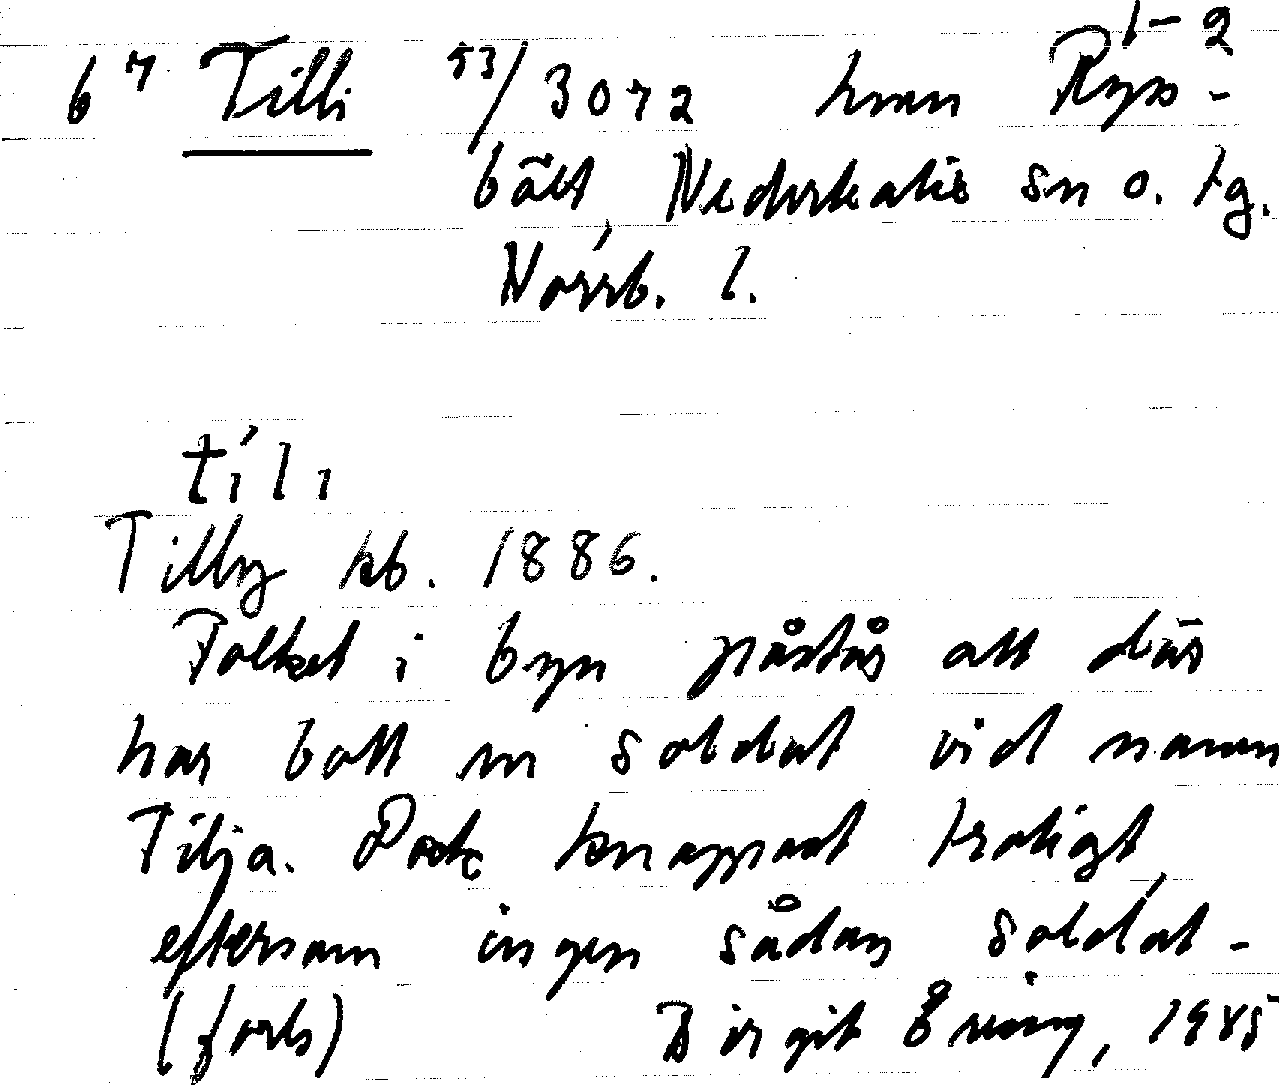 1-2
67 Tilli 53/3072 hmn Ryss-
bält, Nederkalix sn o. tg.
Norrb. l.
tíli
Tilly kb. 1886.
Folket i byn påstår att där
har bott en soldat vid namn
Tilja. Dock knappast troligt,
eftersom ingen sådan soldat-
(forts) Birgit Ering, 1985